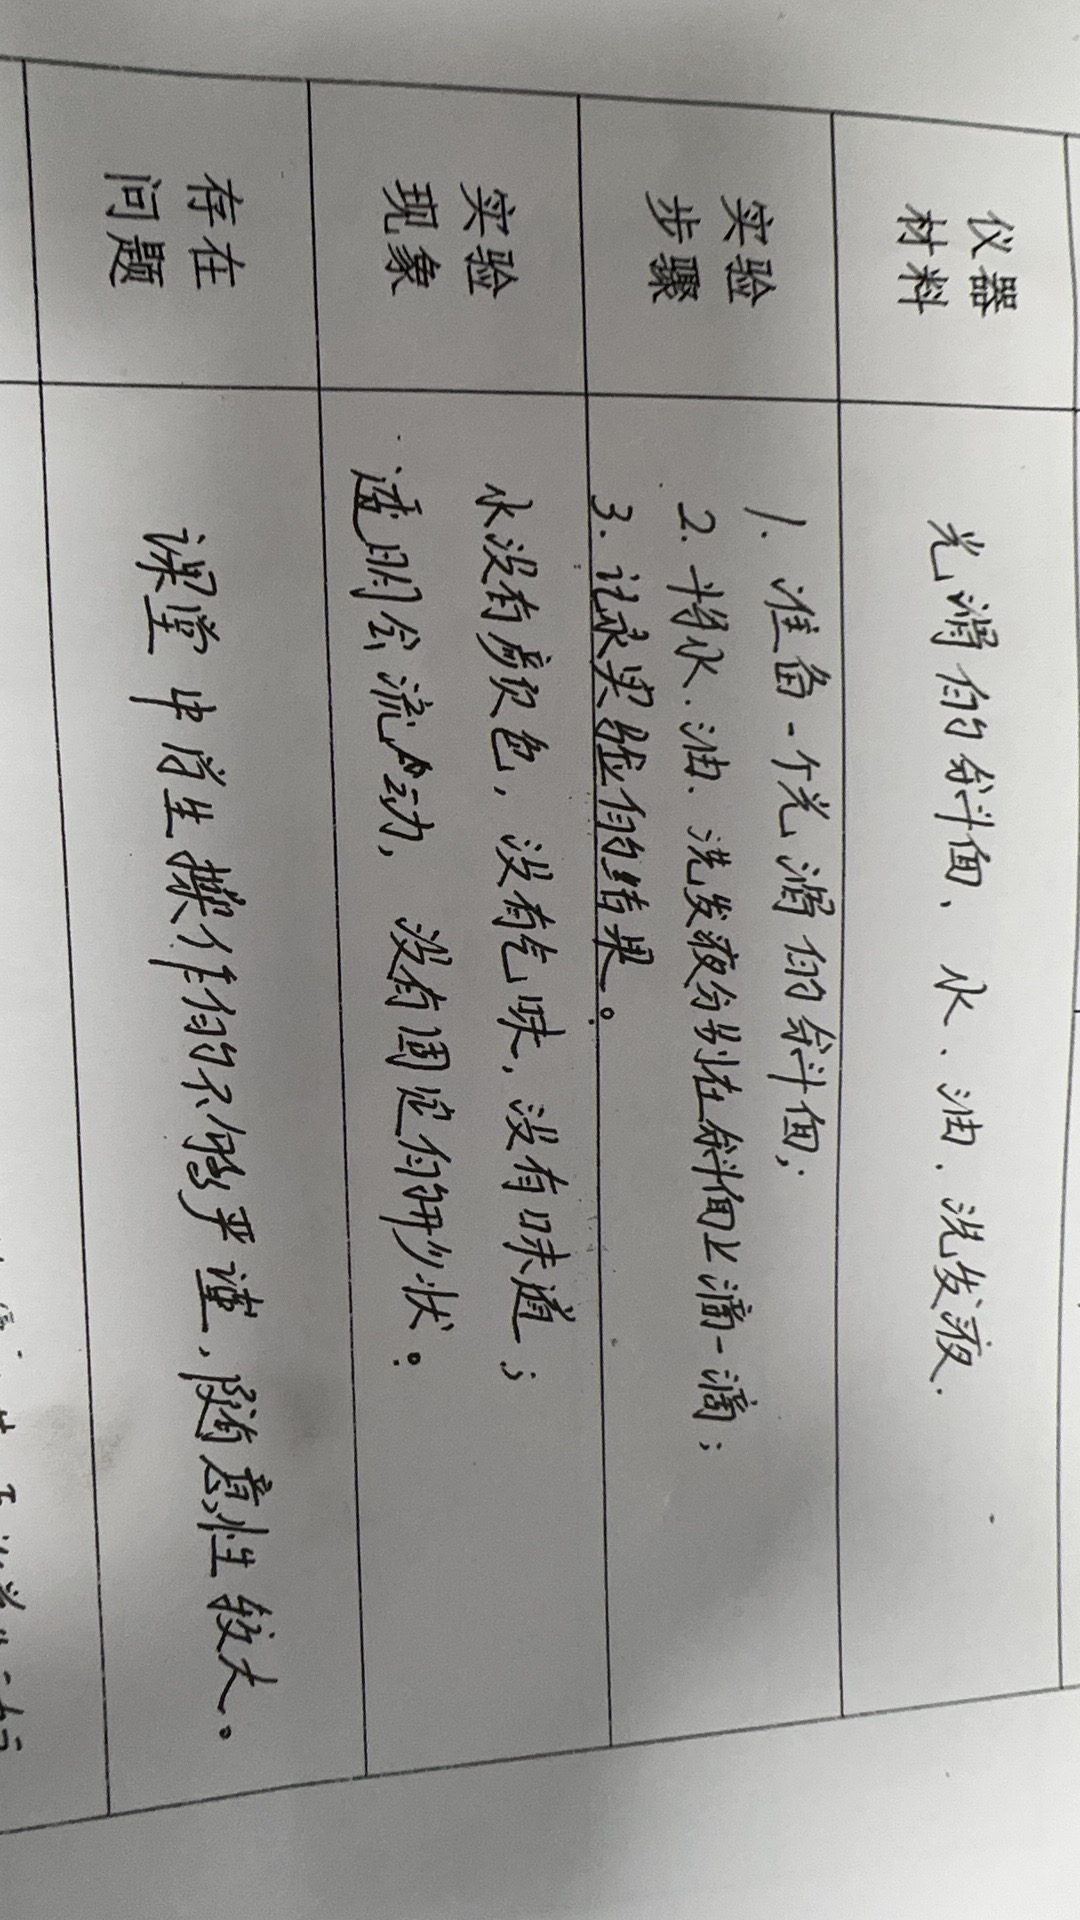 仪器
材料
光滑的斜面、水、油、洗发液.
实验
步骤
1. 准备一个光滑的斜面;
2. 将水、油、洗发液分别在斜面上滴一滴;
3. 记录实验的结果。
实验
现象
水没有颜色, 没有气味, 没有味道;
透明会流动, 没有固定的形状。
存在
问题
课堂中学生操作的不够严谨, 随意性较大。